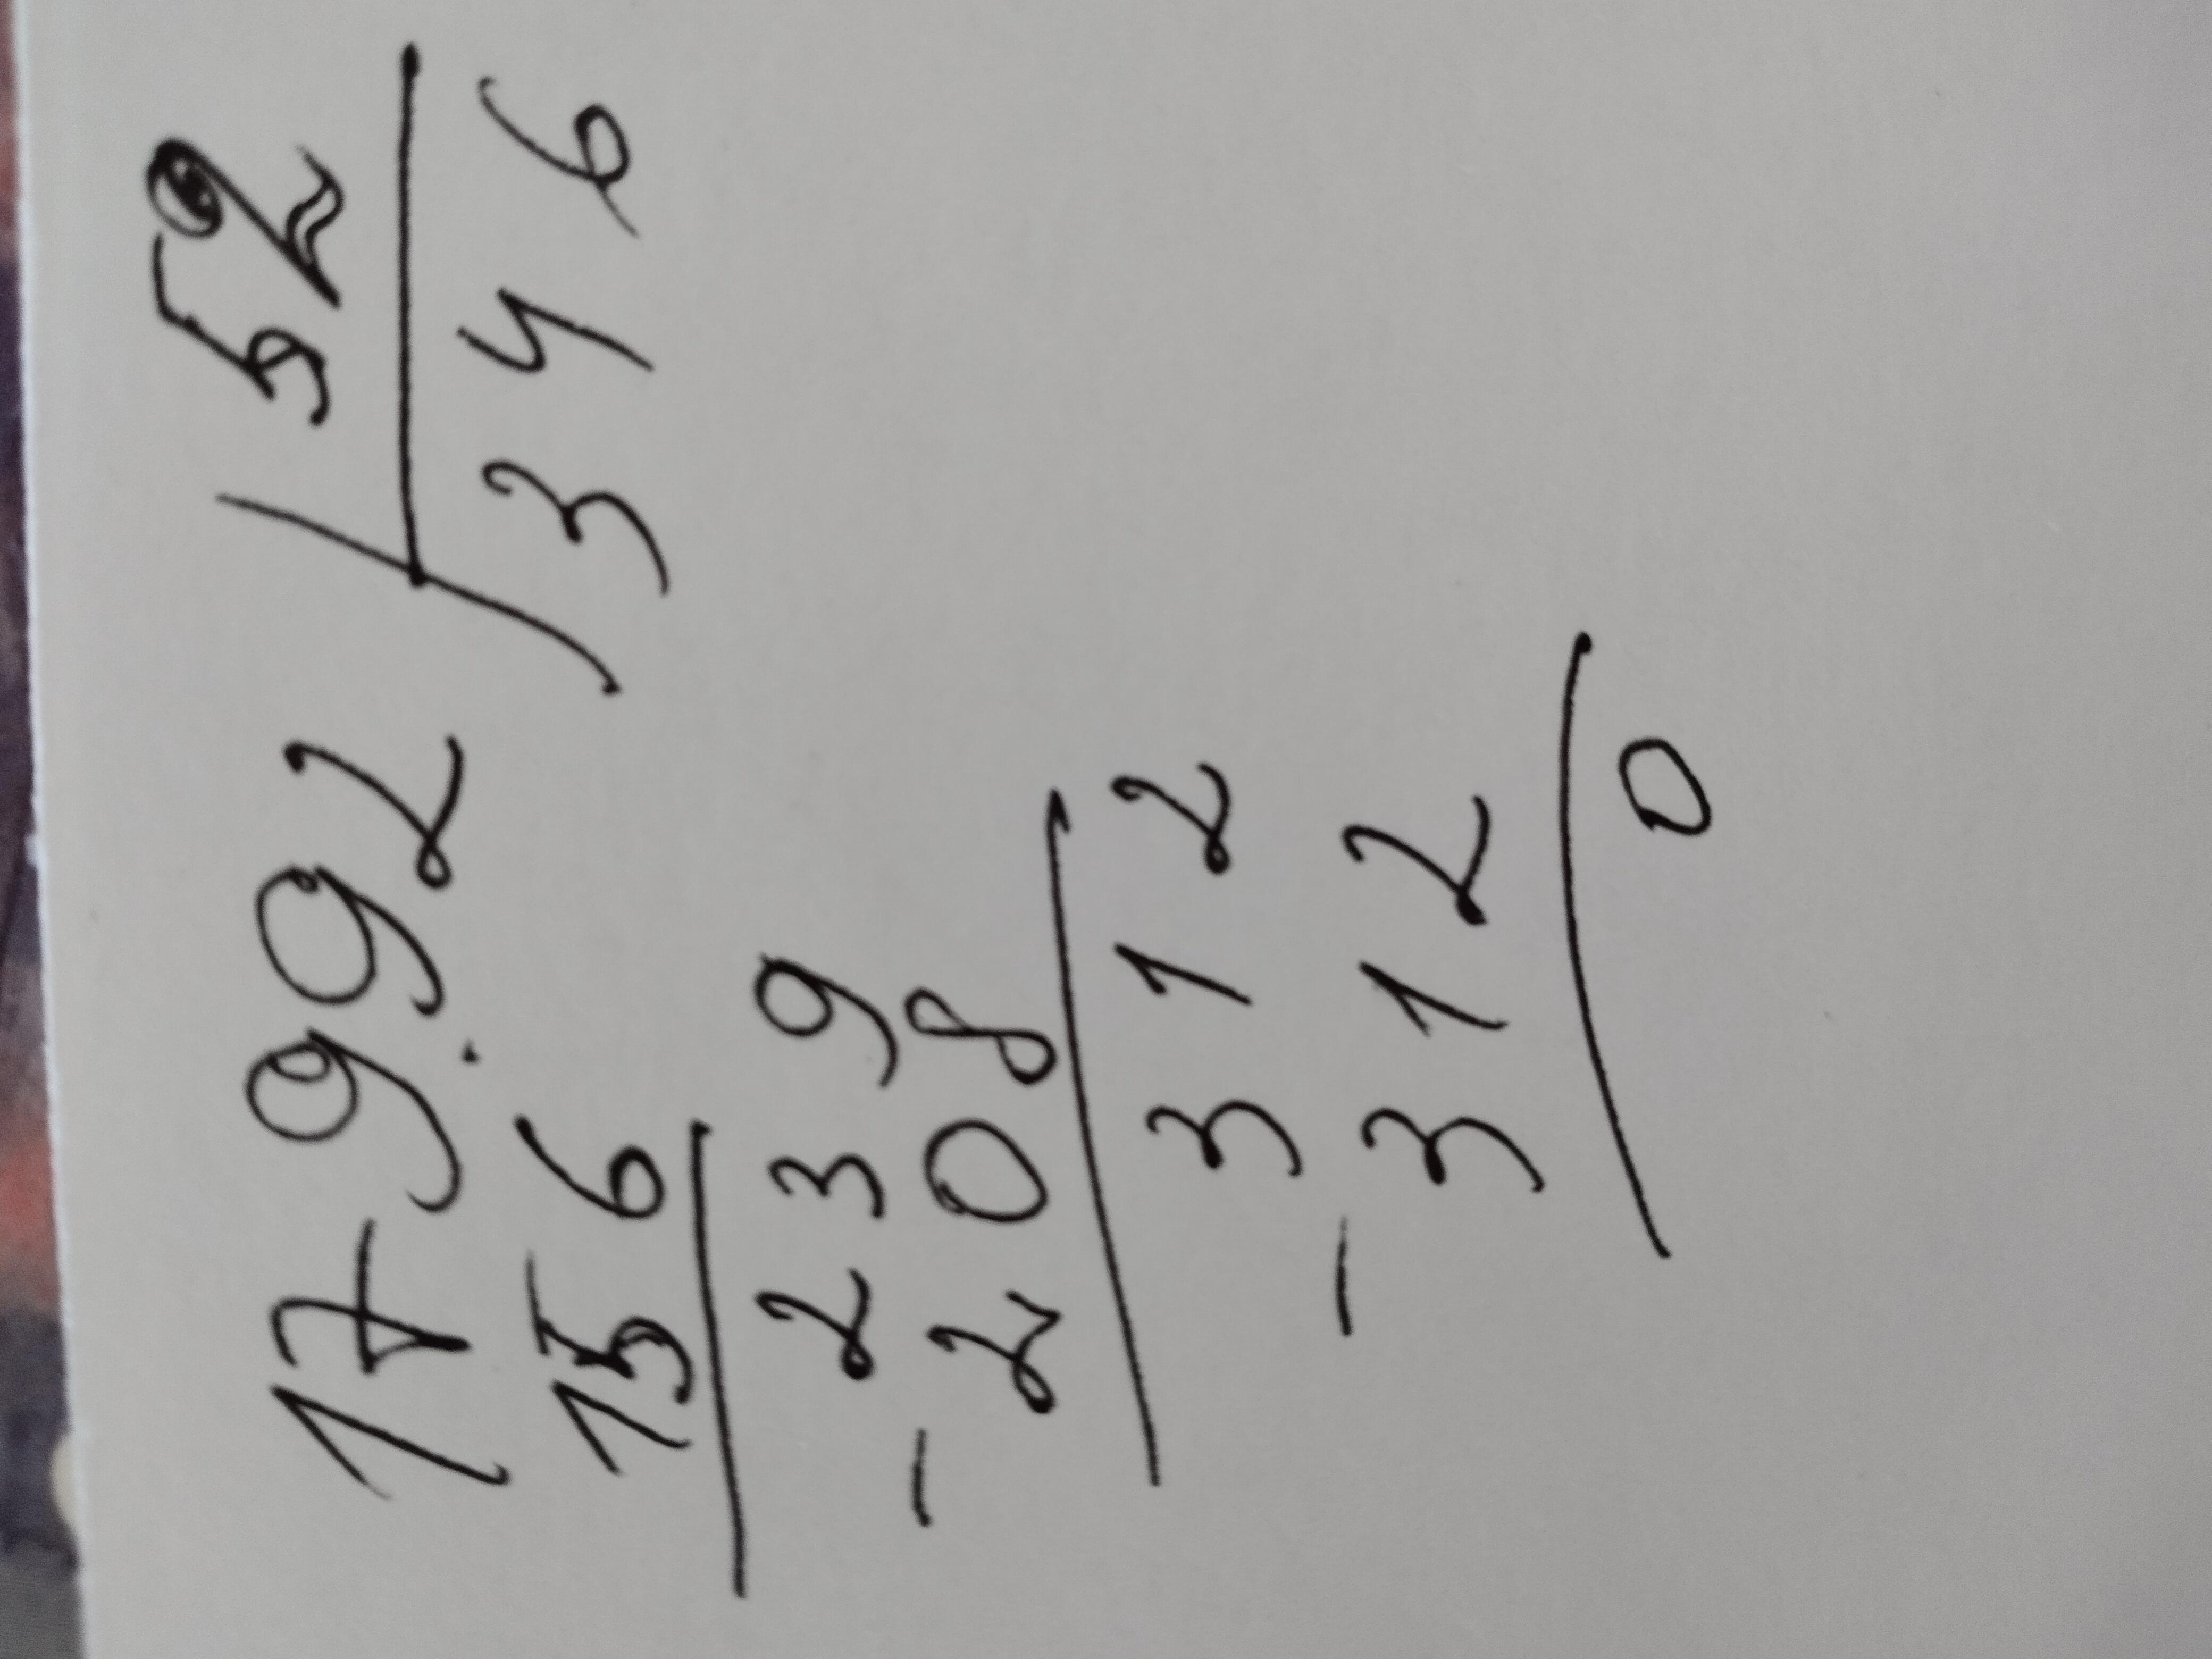 17992 52
346
156
239
- 208
312
- 312
0